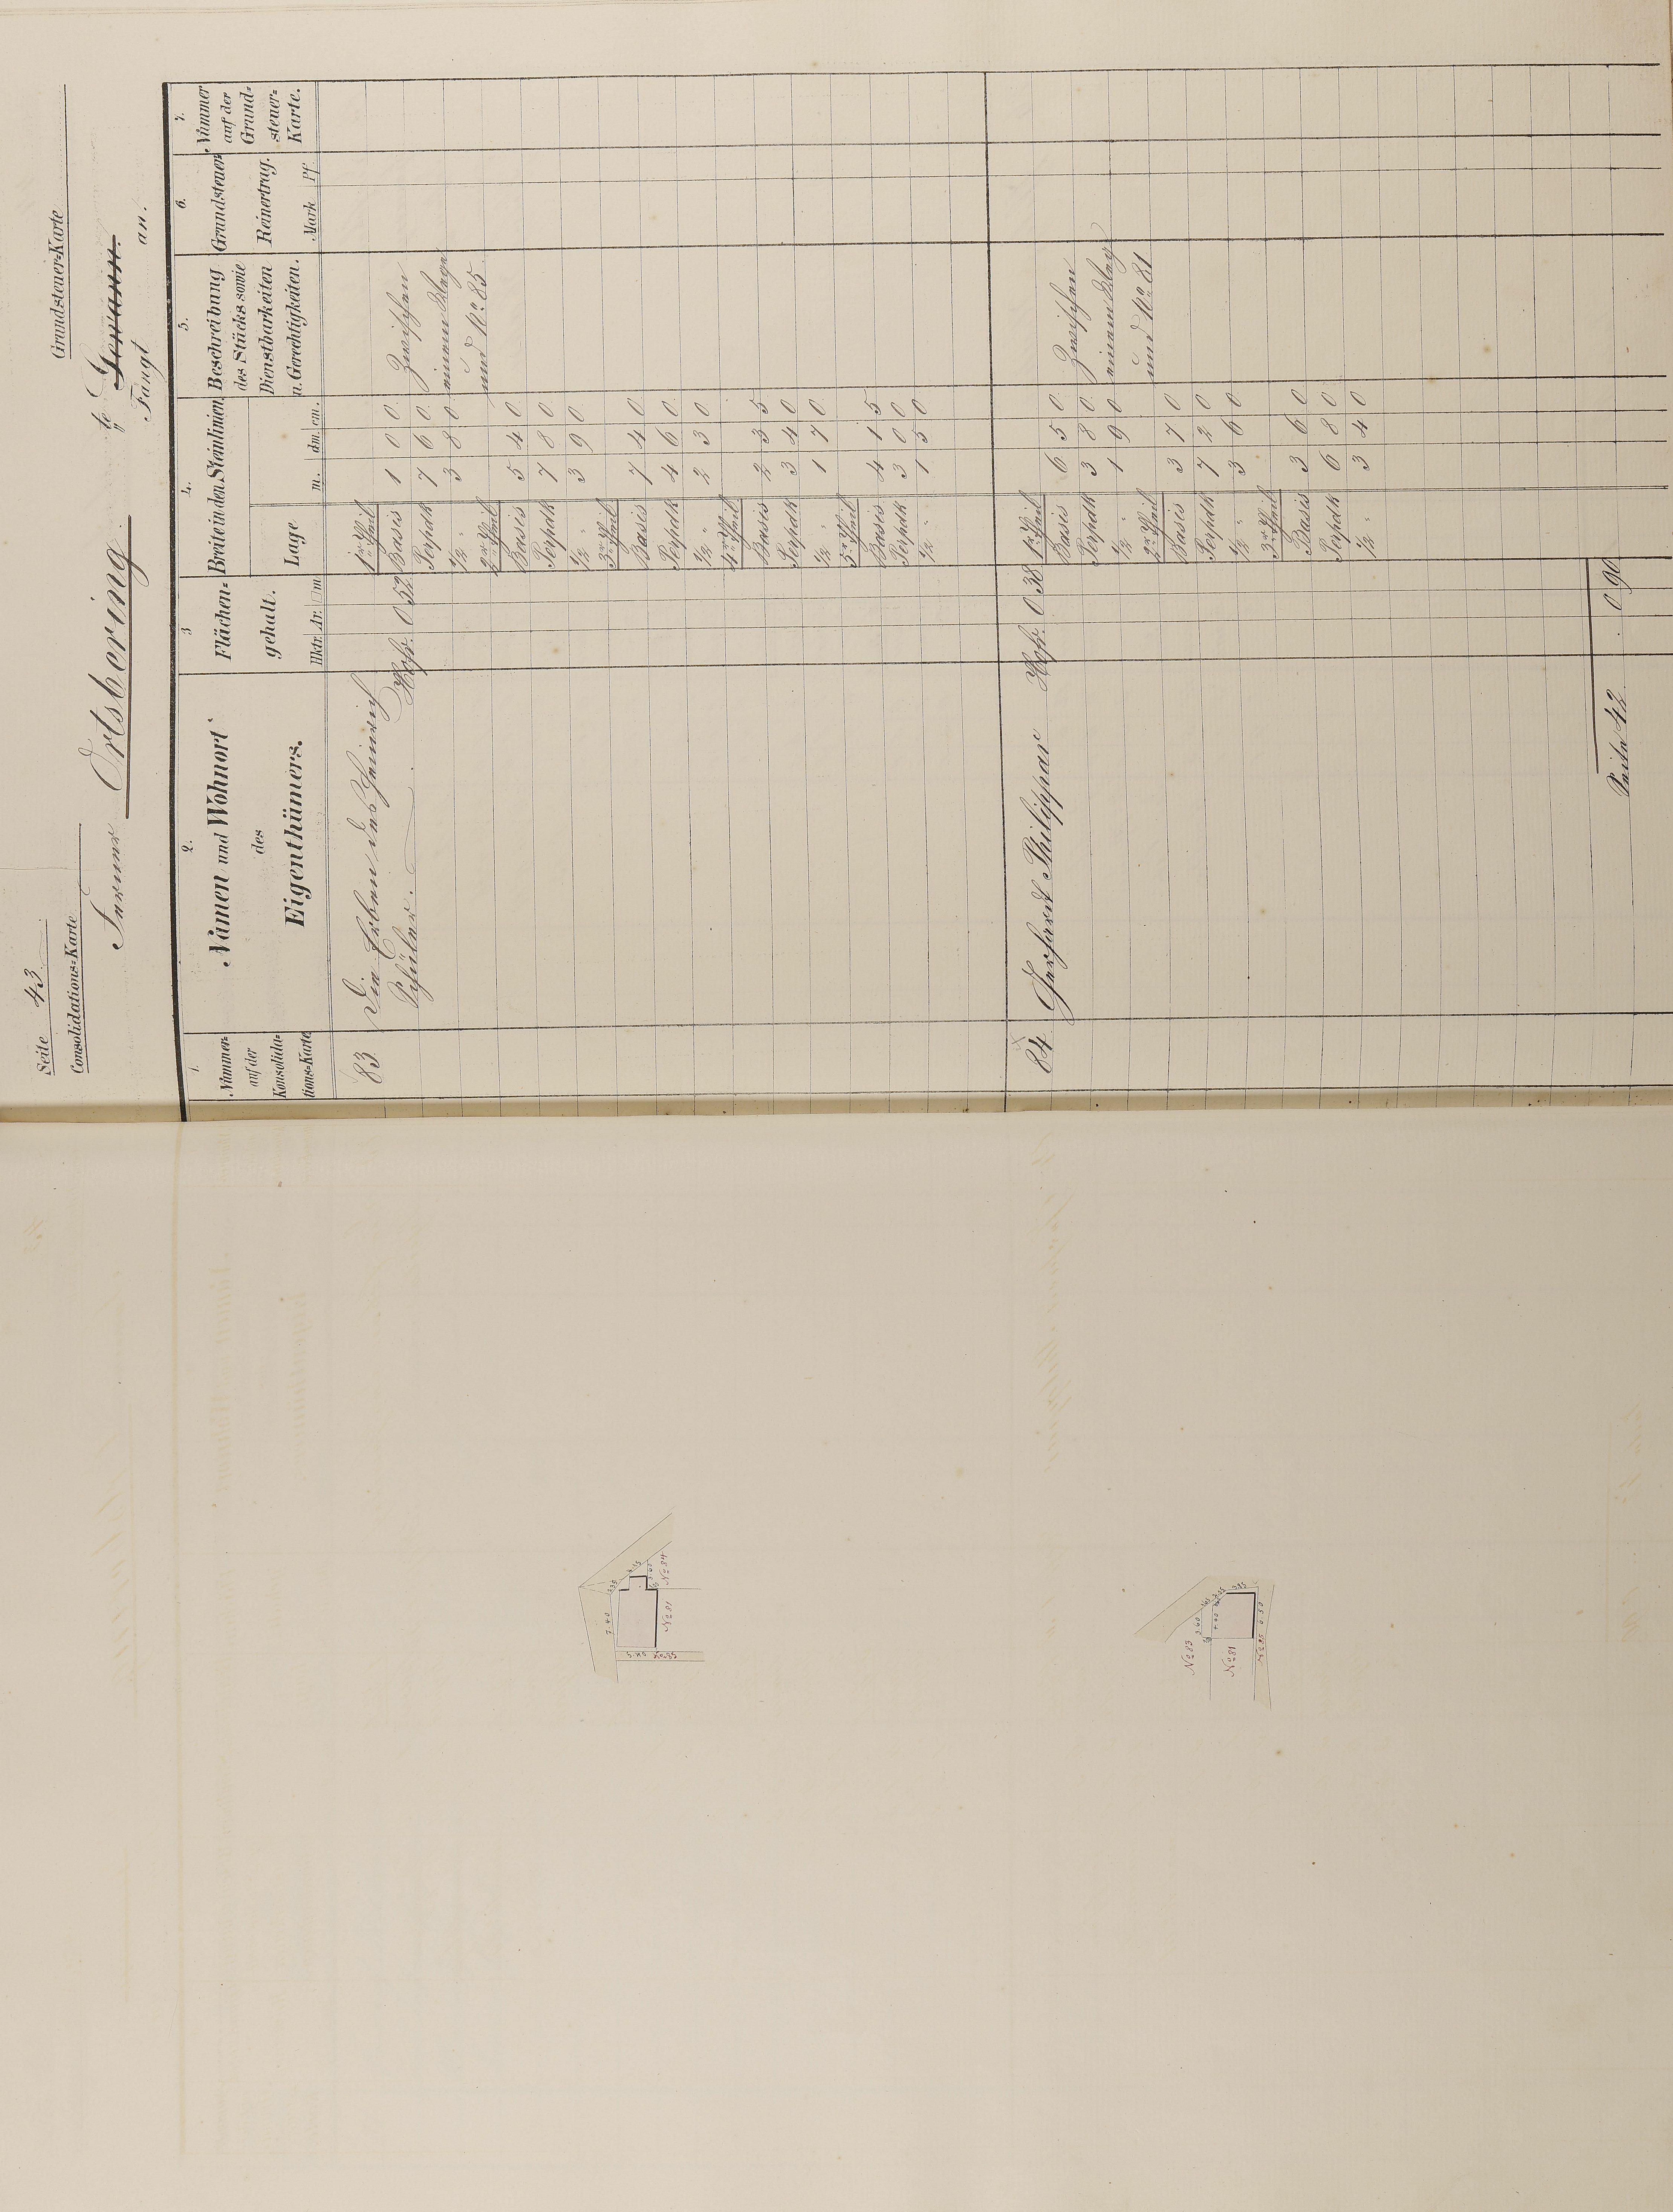 Seite 43.
Consolidations=Karte
Grundsteuer=Karte
Ferner Ortsbering te Gewann.
Fängt an.
1. Nummer auf der Konsolida=tions=Karte
2. Namen und Wohnort des Eigenthümers.
3 Flächen=gehalt. Hktr. Ar. □m
4. Breite in den Steinlinien. Lage m. dm. cm.
5. Beschreibung des Stücks sowie Dienstbarkeiten u. Gerechtigkeiten.
6. Grundsteuer Reinertrag. Mark Pf.
7. Nummer auf der Grund=steuer=Karte.
83 Die Erben des Heinrich
Schüler. Hofr. 0 52
1r. Theil
Basis 1 0 0 Zwischen
Perpdk 7 6 0 einem Wege
1/2 " 3 8 0 und No. 85.
2r. Theil
Basis 5 4 0
Perpdk 7 8 0
1/2 " 3 9 0
3r. Theil
Basis 7 4 0
Perpdk 4 6 0
1/2 " 2 3 0
4r. Theil
Basis 2 3 5
Perpdk 3 4 0
1/2 " 1 7 0
5r. Theil
Basis 4 1 5
Perpdk 3 0 0
1/2 " 1 5 0
84 Gerhardt Philippar Hofr. 0 38
1r. Theil
Basis 6 5 0 Zwischen
Perpdk 3 8 0 einem Wege
1/2 " 1 9 0 und No. 81
2r. Theil
Basis 3 7 0
Perpdk 7 2 0
1/2 " 3 6 0
3r. Theil
Basis 3 6 0
Perpdk 6 8 0
1/2 " 3 4 0
Seite 42 0 90
7.40
5.40
No 85
No 81
No 84
No 83
3.60
No 81
No 85
6.50